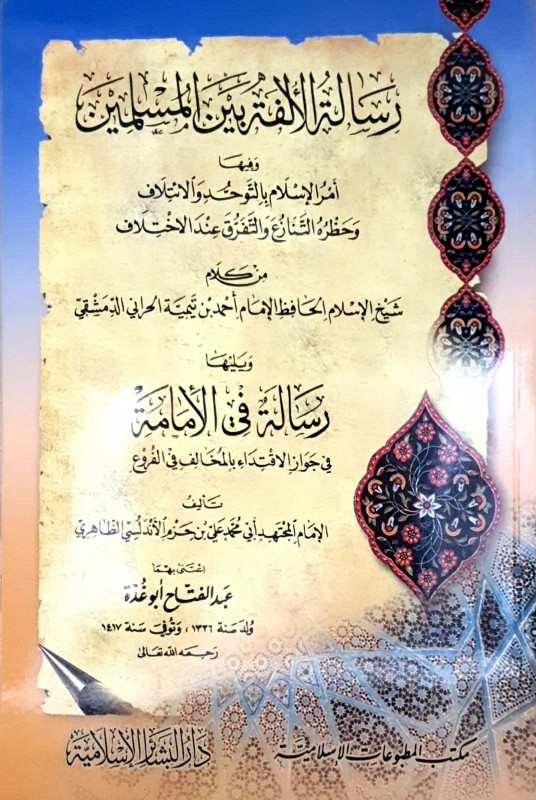 رِسَالَةُ الأُلفَةِ بَيْنَ المُسْلِمِيْنَ
وَفيهَا
أمْرُ الإسْلَام بِالتَّوَحُّدِ وَالائتِلَاف
وَحَظْرُهُ التَّنَازُعَ وَالتَّفَرُّقَ عِنْدَ الاخْتِلَاف
مِنْ كَلَام
شَيْخِ الإسلَامِ الحَافِظِ الإمَامِ أحْمَد بْن تَيْمِيَّة الحراني الدِّمَشْقيّ
وَيَليْهَا
رِسَالَةٌ فِي الإمَامَةِ
في جَوازِ الاقْتِدَاءِ بِالمُخَالِفِ في الفُرُوع
تَأليفُ
الإمَامِ المجْتَهِدِ أبي مُحمَّد عَلي بْن حَزم الأنْدَلُسي الظَّاهِريّ
اعْتَنى بِهمَا
عَبد الفتَّاح أبُو غُدَّة
وُلدَ سَنة ١٣٣٦ ، وَتُوفيَ سَنة ١٤١٧
رَحِمَه اللّٰه تعَالىٰ
مكتب المطبوعات الإسلاميَّة
دَارُ البشَائرِ الإسْلَاميَّة